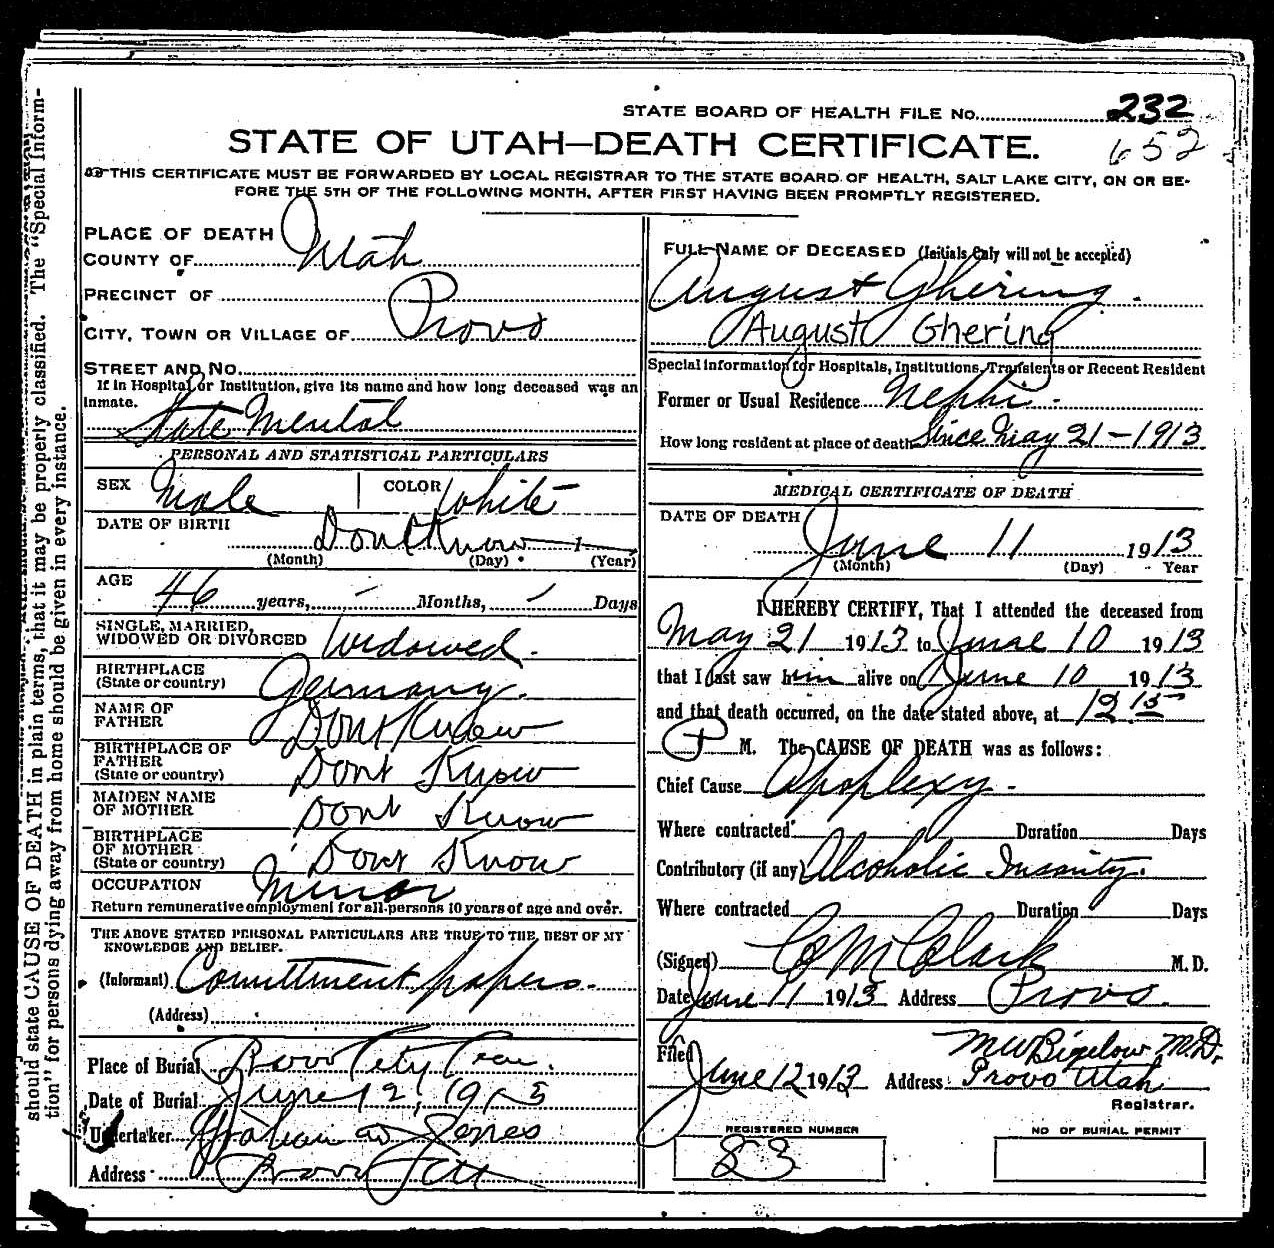 STATE BOARD OF HEALTH FILE No. 232
652
STATE OF UTAH—DEATH CERTIFICATE.
THIS CERTIFICATE MUST BE FORWARDED BY LOCAL REGISTRAR TO THE STATE BOARD OF HEALTH, SALT LAKE CITY, ON OR BE-
FORE THE 5TH OF THE FOLLOWING MONTH, AFTER FIRST HAVING BEEN PROMPTLY REGISTERED.
should state CAUSE OF DEATH in plain terms, that it may be properly classified. The "Special Inform-
tion" for persons dying away from home should be given in every instance.
PLACE OF DEATH
COUNTY OF Utah
PRECINCT OF
CITY, TOWN OR VILLAGE OF Provo
STREET AND No.
If in Hospital or Institution, give its name and how long deceased was an
inmate.
State Mental
PERSONAL AND STATISTICAL PARTICULARS
SEX Male COLOR White
DATE OF BIRTH
Dont Know
(Month) (Day) (Year)
AGE
46 years, — Months, — Days
SINGLE, MARRIED,
WIDOWED OR DIVORCED Widowed.
BIRTHPLACE
(State or country) Germany.
NAME OF
FATHER Dont Know
BIRTHPLACE OF
FATHER
(State or country) Dont Know
MAIDEN NAME
OF MOTHER Dont Know
BIRTHPLACE
OF MOTHER
(State or country) Dont Know
OCCUPATION Minor
Return remunerative employment for all persons 10 years of age and over.
THE ABOVE STATED PERSONAL PARTICULARS ARE TRUE TO THE BEST OF MY
KNOWLEDGE AND BELIEF.
(Informant) Comittment papers.
(Address)
Place of Burial Provo City Cem.
Date of Burial June 12, 1913
Undertaker Graham & Jones
Address Provo
FULL NAME OF DECEASED (Initials Only will not be accepted)
August Ghering.
August Ghering
Special Information for Hospitals, Institutions, Transients or Recent Resident
Former or Usual Residence Nephi.
How long resident at place of death Since May 21-1913
MEDICAL CERTIFICATE OF DEATH
DATE OF DEATH
June 11 1913
(Month) (Day) Year
I HEREBY CERTIFY, That I attended the deceased from
May 21 1913 to June 10 1913
that I last saw him alive on June 10 1913
and that death occurred, on the date stated above, at 12.15
P M. The CAUSE OF DEATH was as follows:
Chief Cause Apoplexy.
Where contracted Duration Days
Contributory (if any) Alcoholic Insanity.
Where contracted Duration Days
(Signed) C M Clark M.D.
Date June 11 1913 Address Provo.
Filed M W Bigelow M.D.
June 12 1913 Address Provo Utah
Registrar.
REGISTERED NUMBER
83
NO OF BURIAL PERMIT